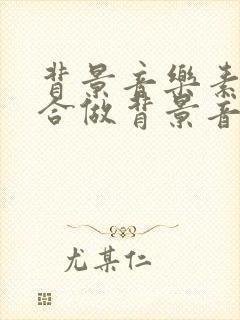 背景音樂素
合做背景音
尤某仁